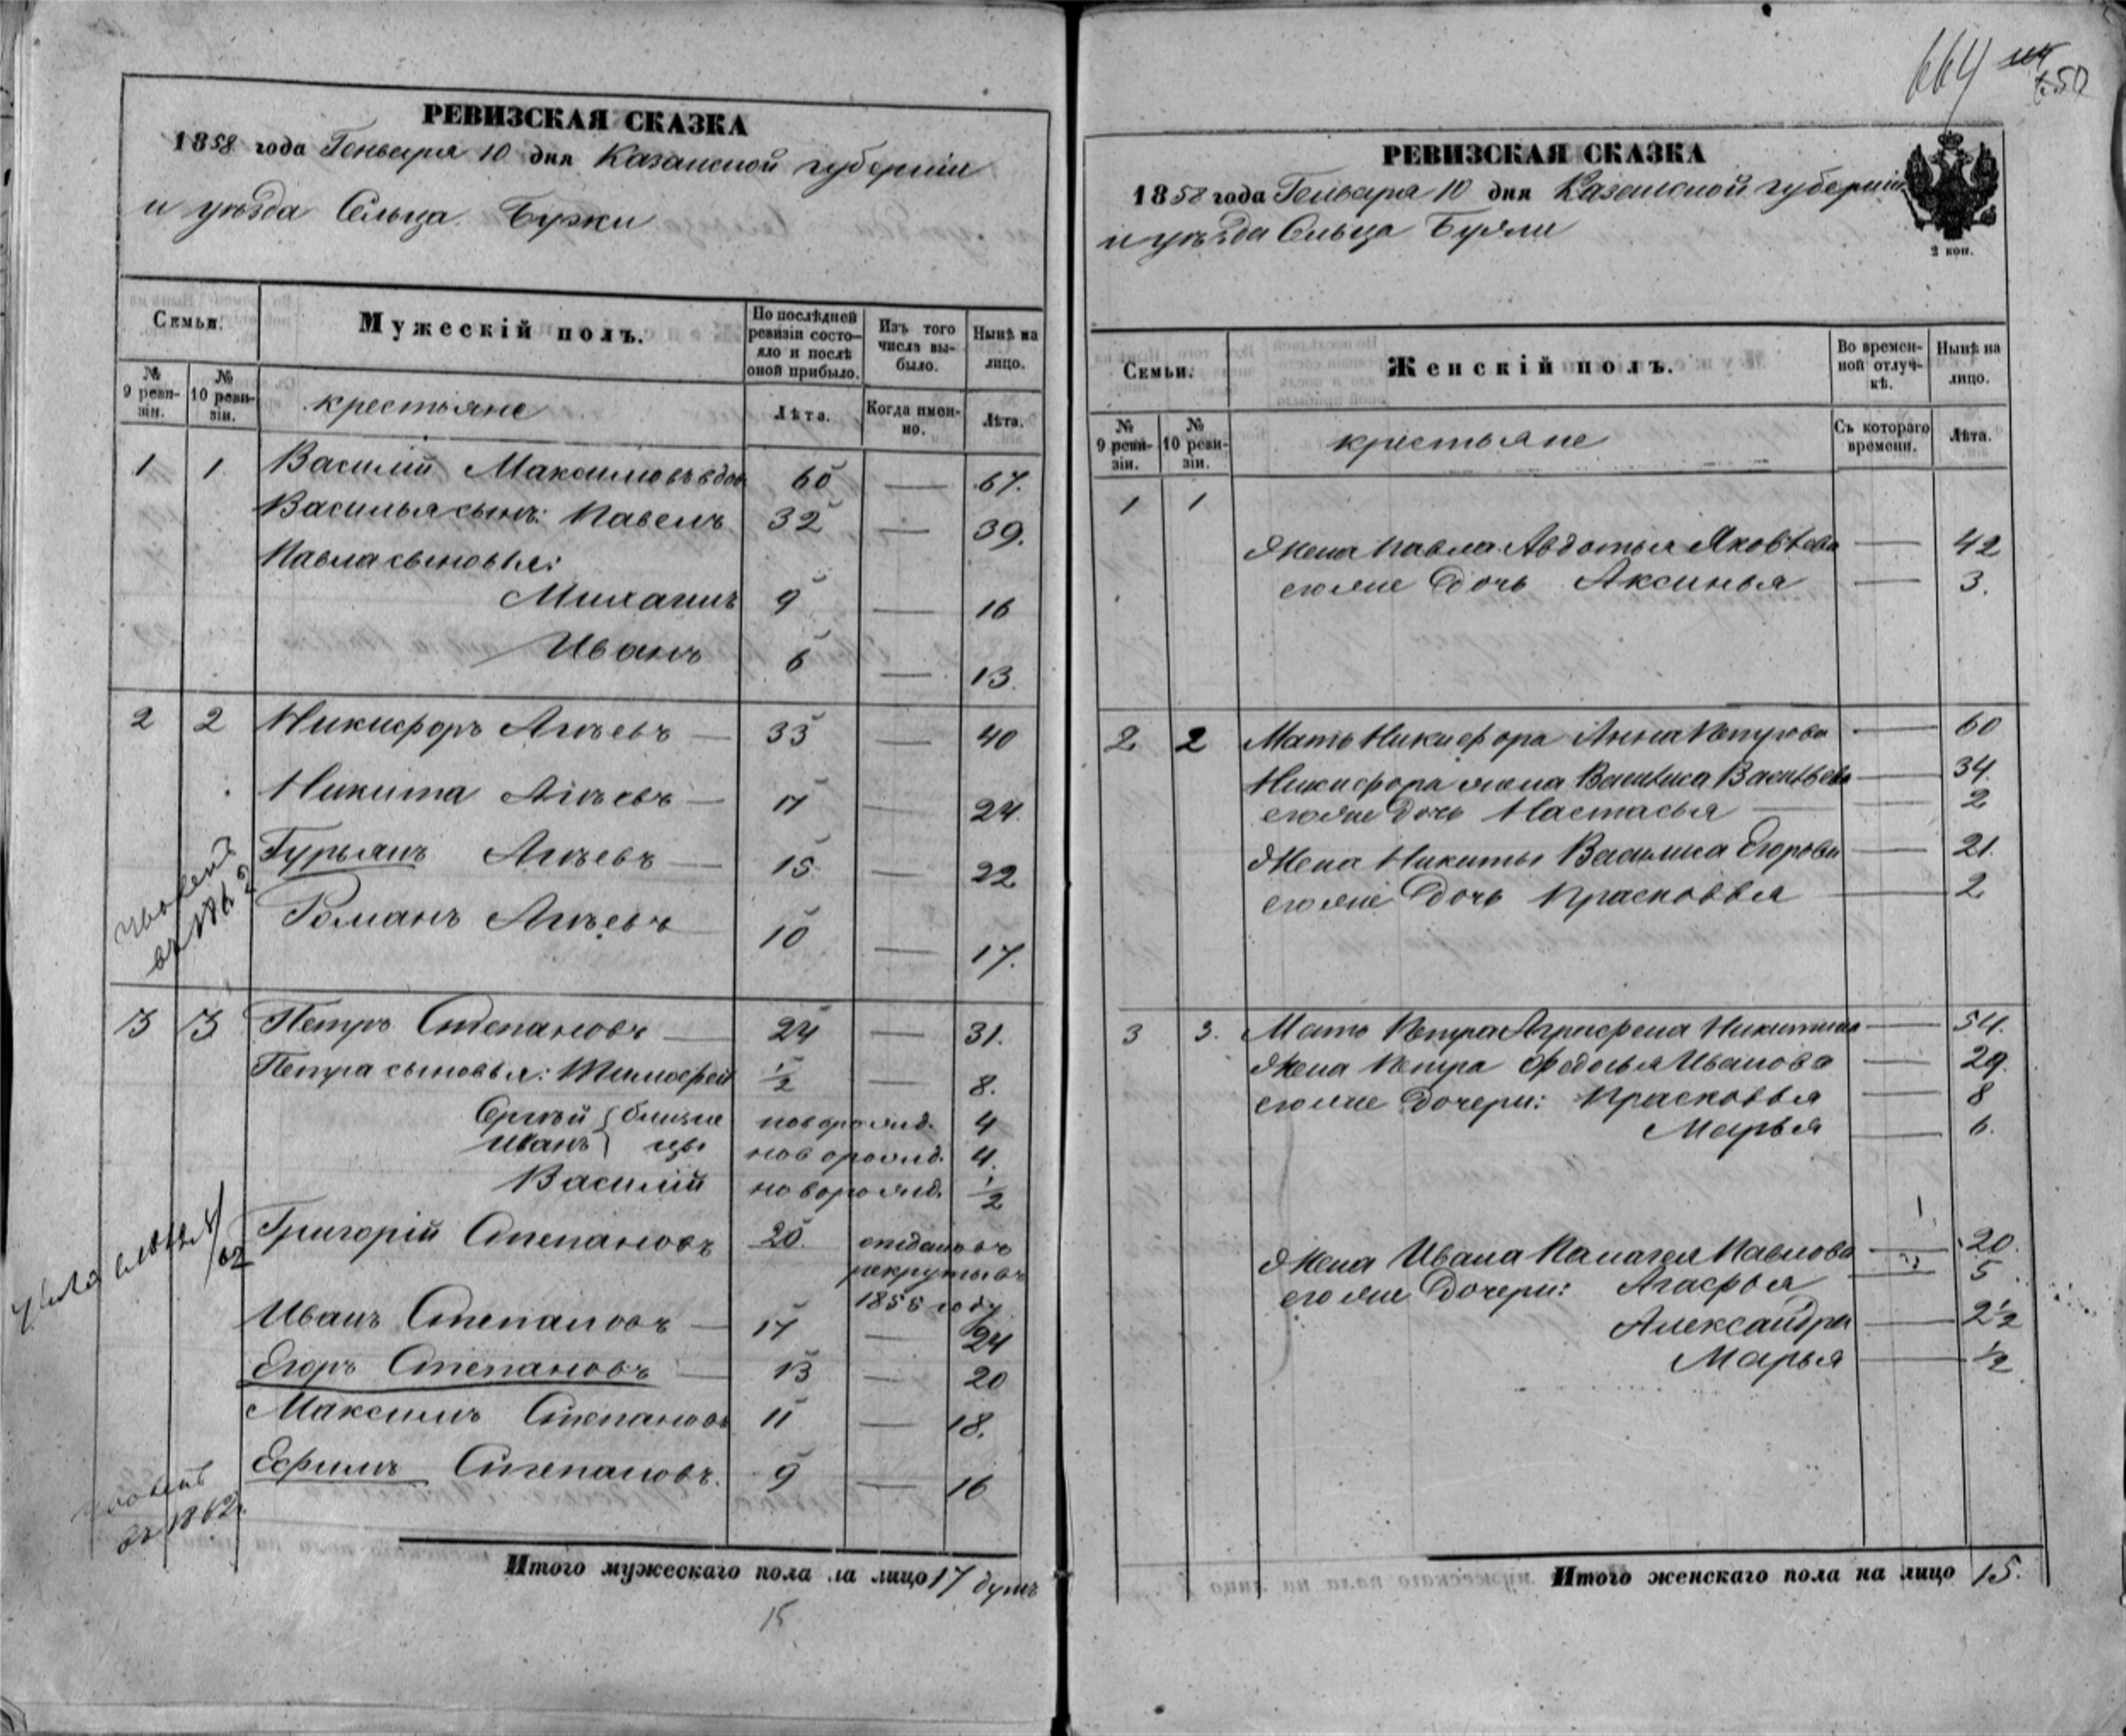 664
РЕВИЗСКАЯ СКАЗКА
1858 года Генваря 10 дня Казанской губернии
и уѣзда Сельца
Семьи.
Мужескій полъ.
По послѣдней ревизіи состояло и послѣ оной прибыло.
Изъ того числа выбыло.
Нынѣ на лицо.
№ 9 ревизіи.
№ 10 ревизіи.
крестьяне
Лѣта.
Когда именно.
Лѣта.
1 1 Василій Максимовъ вдов 60 — 67.
Василья сынъ: Павелъ 32 — 39.
Павла сыновья:
Михаилъ 9 — 16
Иванъ 6 — 13.
2 2 Никифоръ 33 — 40
Никита 17 — 24.
Гурьянъ 15. — 22
Романъ 10 — 17.
въ 1862
3 3 Петръ Степановъ 24 — 31.
Петра сыновья: Тимофей 1/2 — 8.
Сергѣй } близне новорожд. 4
Иванъ } цы новорожд. 4.
Василій новорожд. 1/2
Григорій Степановъ 20. отданъ въ
рекруты въ
1855 году
Иванъ Степановъ — 17 — 24
Егоръ Степановъ — 13 — 20
Максимъ Степановъ 11 — 18.
Ефимъ Степановъ. 9 — 16
въ 1862.
Итого мужескаго пола на лицо 17 душъ
15
РЕВИЗСКАЯ СКАЗКА
1858 года Генваря 10 дня Казанской губерніи
и уѣзда Сельца
2 коп.
Семьи.
Женскій полъ.
Во временной отлучкѣ.
Нынѣ на лицо.
№ 9 ревизіи.
№ 10 ревизіи.
крестьяне
Съ котораго времени.
Лѣта.
1 1
Жена Павла Авдотья Яковлева — 42
его же Дочь Аксинья — 3.
2 2 Мать Никифора Анна Петрова — 60
Никифора жена Василиса Васильева — 34.
его же Дочь Настасья — 2
Жена Никиты Василиса Егорова — 21.
его же Дочь Прасковья — 2
3 3. Мать Петра Аграфена Никитина — 54.
Жена Петра Федосья Иванова — 29.
его же Дочери: Прасковья — 8
Марья — 6.
Жена Ивана Палагея Павлова — 20.
его же Дочери: Агафья — 5
Александра — 2 1/2
Марья — 1/2
Итого женскаго пола на лицо 15.